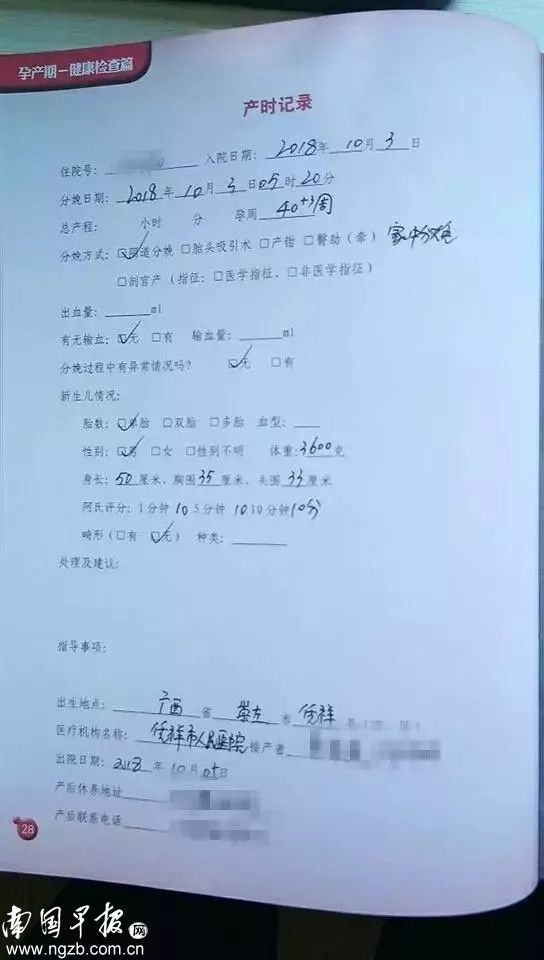 孕产期-健康检查篇
产时记录
住院号: 入院日期: 2018年 10月 3日
分娩日期: 2018年 10月 3日 05时 20分
总产程: 小时 分 孕周 40+3周
分娩方式: ☑阴道分娩 □胎头吸引术 □产钳 □臀助(牵) 家中分娩
□剖宫产(指征: □医学指征、□非医学指征)
出血量: ml
有无输血: ☑无 □有 输血量: ml
分娩过程中有异常情况吗? ☑无 □有
新生儿情况:
胎数: ☑单胎 □双胎 □多胎 血型:
性别: ☑男 □女 □性别不明 体重: 3600克
身长: 50厘米、胸围35厘米、头围33厘米
阿氏评分: 1分钟 10 5分钟 10 10分钟 10分
畸形(□有 ☑无) 种类:
处理及建议:
指导事项:
出生地点: 广西 省 崇左 市 凭祥 县(市、区)
医疗机构名称: 凭祥市人民医院 接产者
出院日期: 2018年 10月 05日
产后休养地址
产后联系电话
28
南国早报网
www.ngzb.com.cn